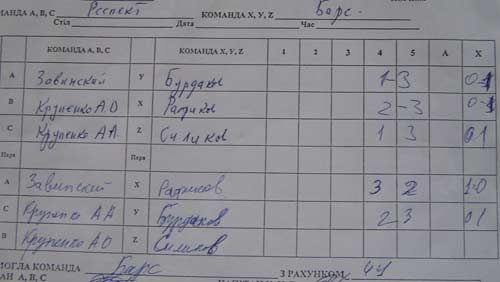 МАНДА А, В, С Респект КОМАНДА X, Y, Z Барс
Стіл Дата Час
КОМАНДА А, В, С КОМАНДА X, Y, Z 1 2 3 4 5 А Х
А Завинский У Бурдаков 1-3 0-1
В Крупенко А.О Х Рафиков 2-3 0-1
С Крупенко А.А. Z Силиков 1 3 0 1
Пара Пара
А Завинский Х Рафиков 3 2 1-0
С Крупенко А А У Бурдаков 2 3 0 1
В Крупенко А О Z Силиков
МОГЛА КОМАНДА Барс З РАХУНКОМ
АН А, В, С